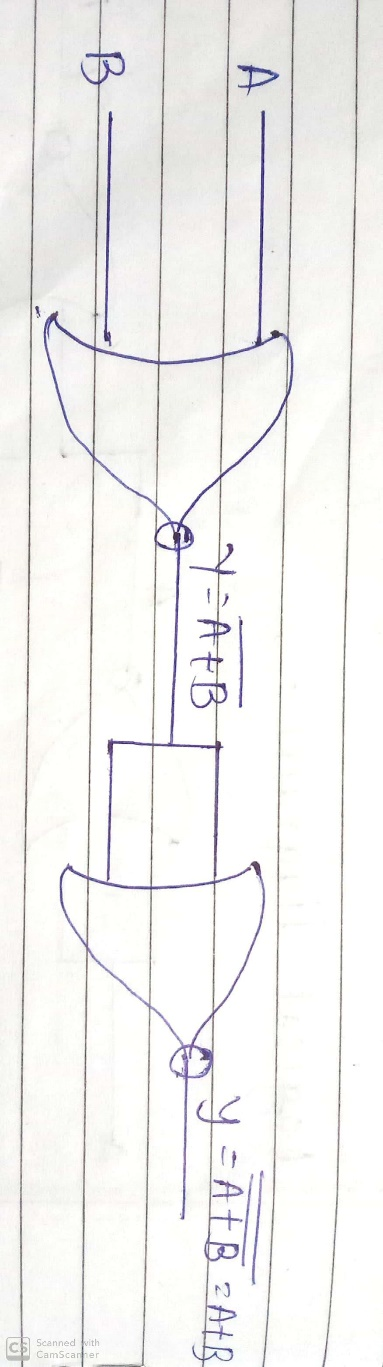 A
B
y = \overline{A+B}
y = \overline{\overline{A+B}} = A+B
CS Scanned with
CamScanner